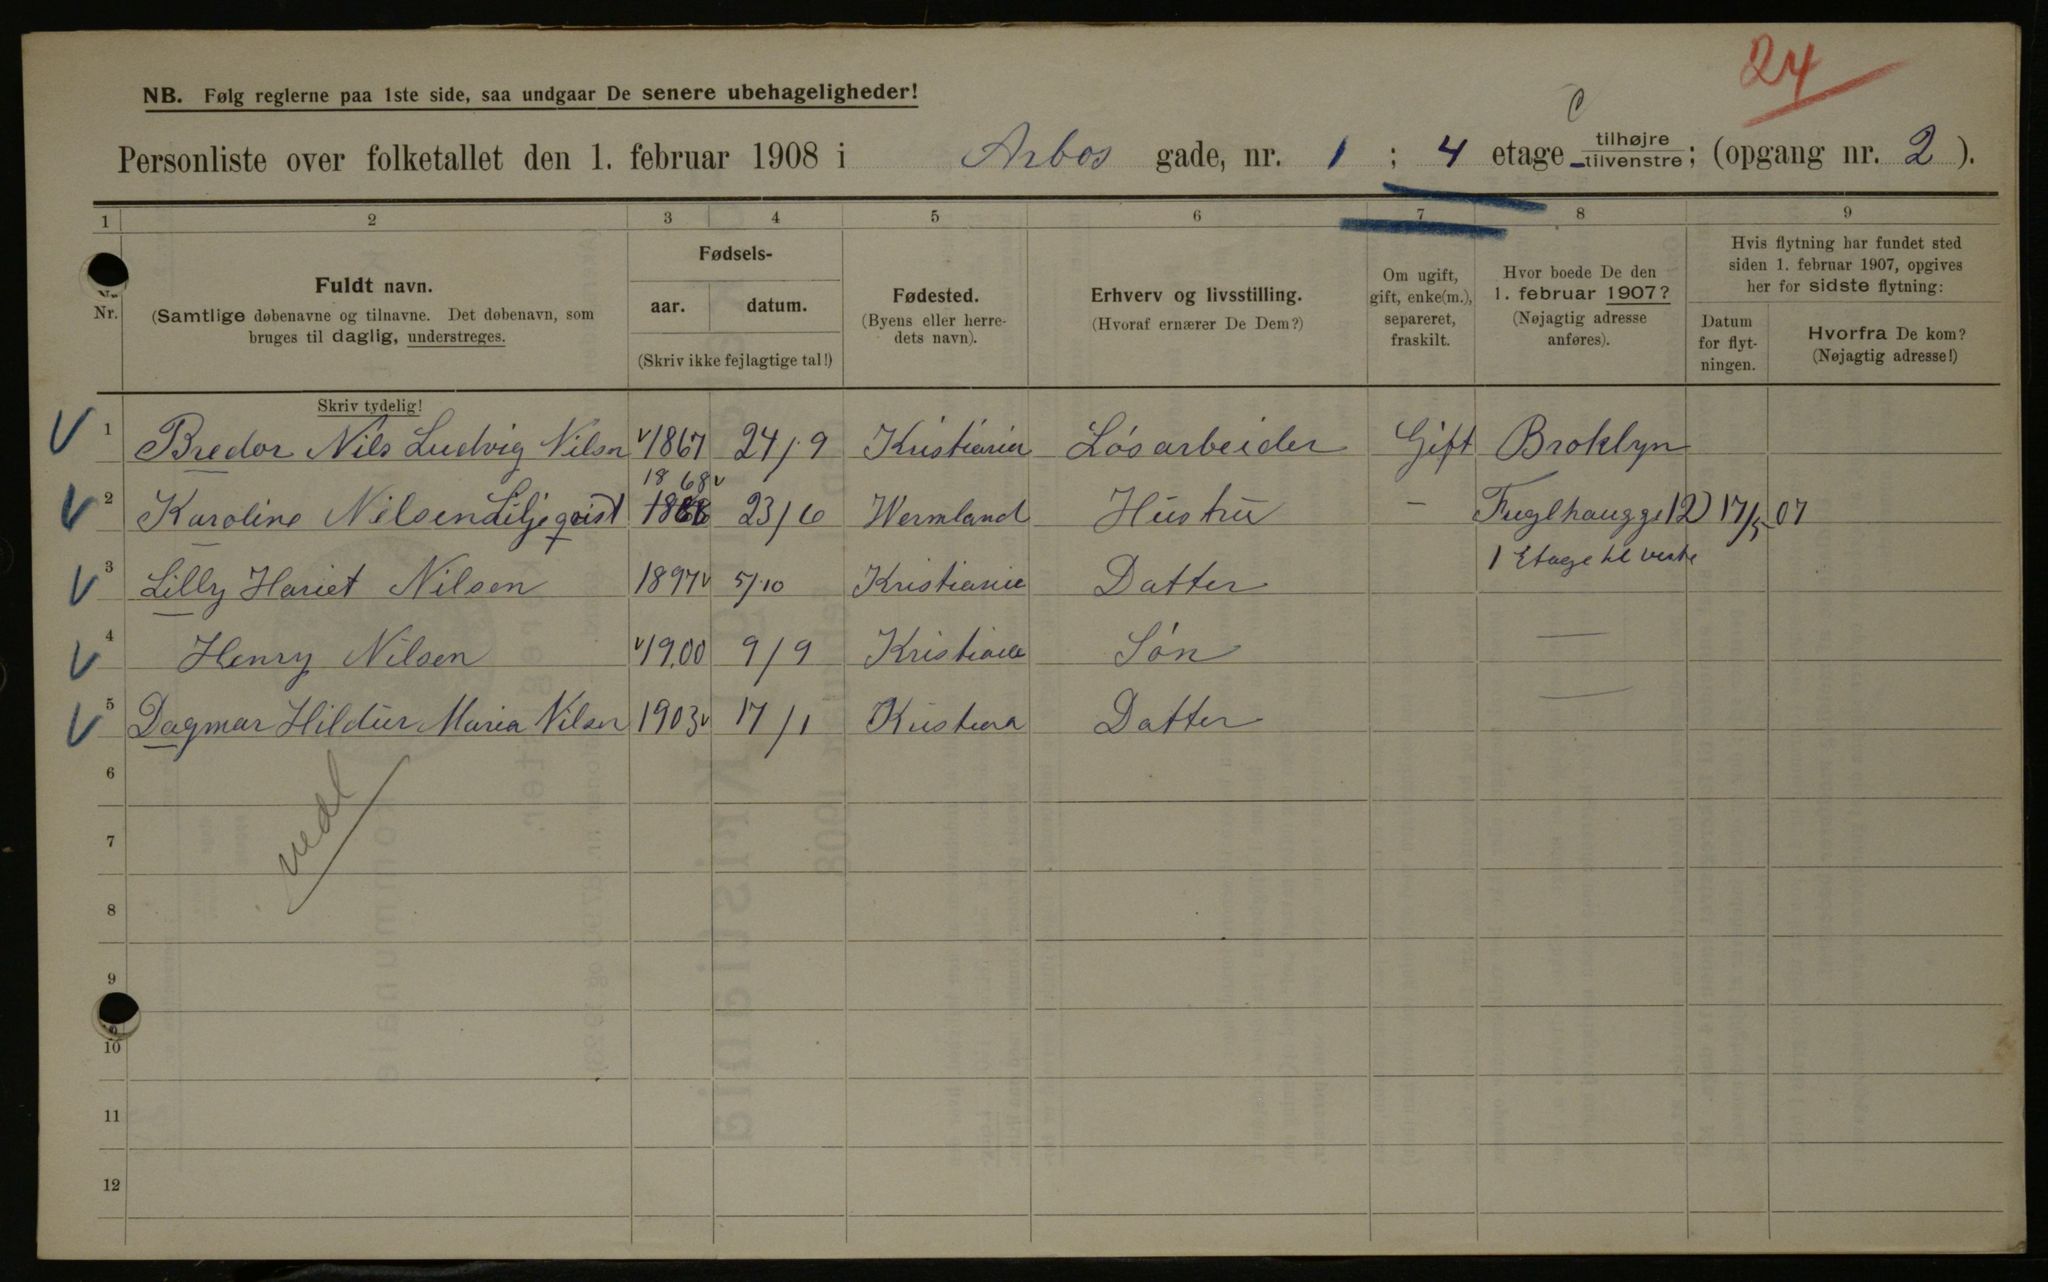 24
NB. Følg reglerne paa 1ste side, saa undgaar De senere ubehageligheder!
Personliste over folketallet den 1. februar 1908 i Arbos gade, nr. 1 ; 4 etage tilhøjre/tilvenstre; (opgang nr. 2 ).
1 2 3 4 5 6 7 8 9
Nr.
Fuldt navn.
(Samtlige døbenavne og tilnavne. Det døbenavn, som
bruges til daglig, understreges.
Skriv tydelig!
Fødsels-
aar. datum.
(Skriv ikke fejlagtige tal!)
Fødested.
(Byens eller herre-
dets navn).
Erhverv og livsstilling.
(Hvoraf ernærer De Dem?)
Om ugift,
gift, enke(m.),
separeret,
fraskilt.
Hvor boede De den
1. februar 1907?
(Nøjagtig adresse
anføres).
Hvis flytning har fundet sted
siden 1. februar 1907, opgives
her for sidste flytning:
Datum
for flyt-
ningen.
Hvorfra De kom?
(Nøjagtig adresse!)
1 Bredor Nils Ludvig Nilsen 1867 24/9 Kristiania Løsarbeider Gift Broklyn
1868
2 Karoline Nilsen Liljeqvist 1868 23/6 Wermland Hustru - Fuglhaugge 12 17/5 07
1 Etage til venste
3 Lilly Hariet Nilsen 1897 5/10 Kristiania Datter
4 Henry Nilsen 1900 9/9 Kristiania Søn —
5 Dagmar Hildur Maria Nilsen 1903 17/1 Kristiania Datter —
6
7
8
9
10
11
12